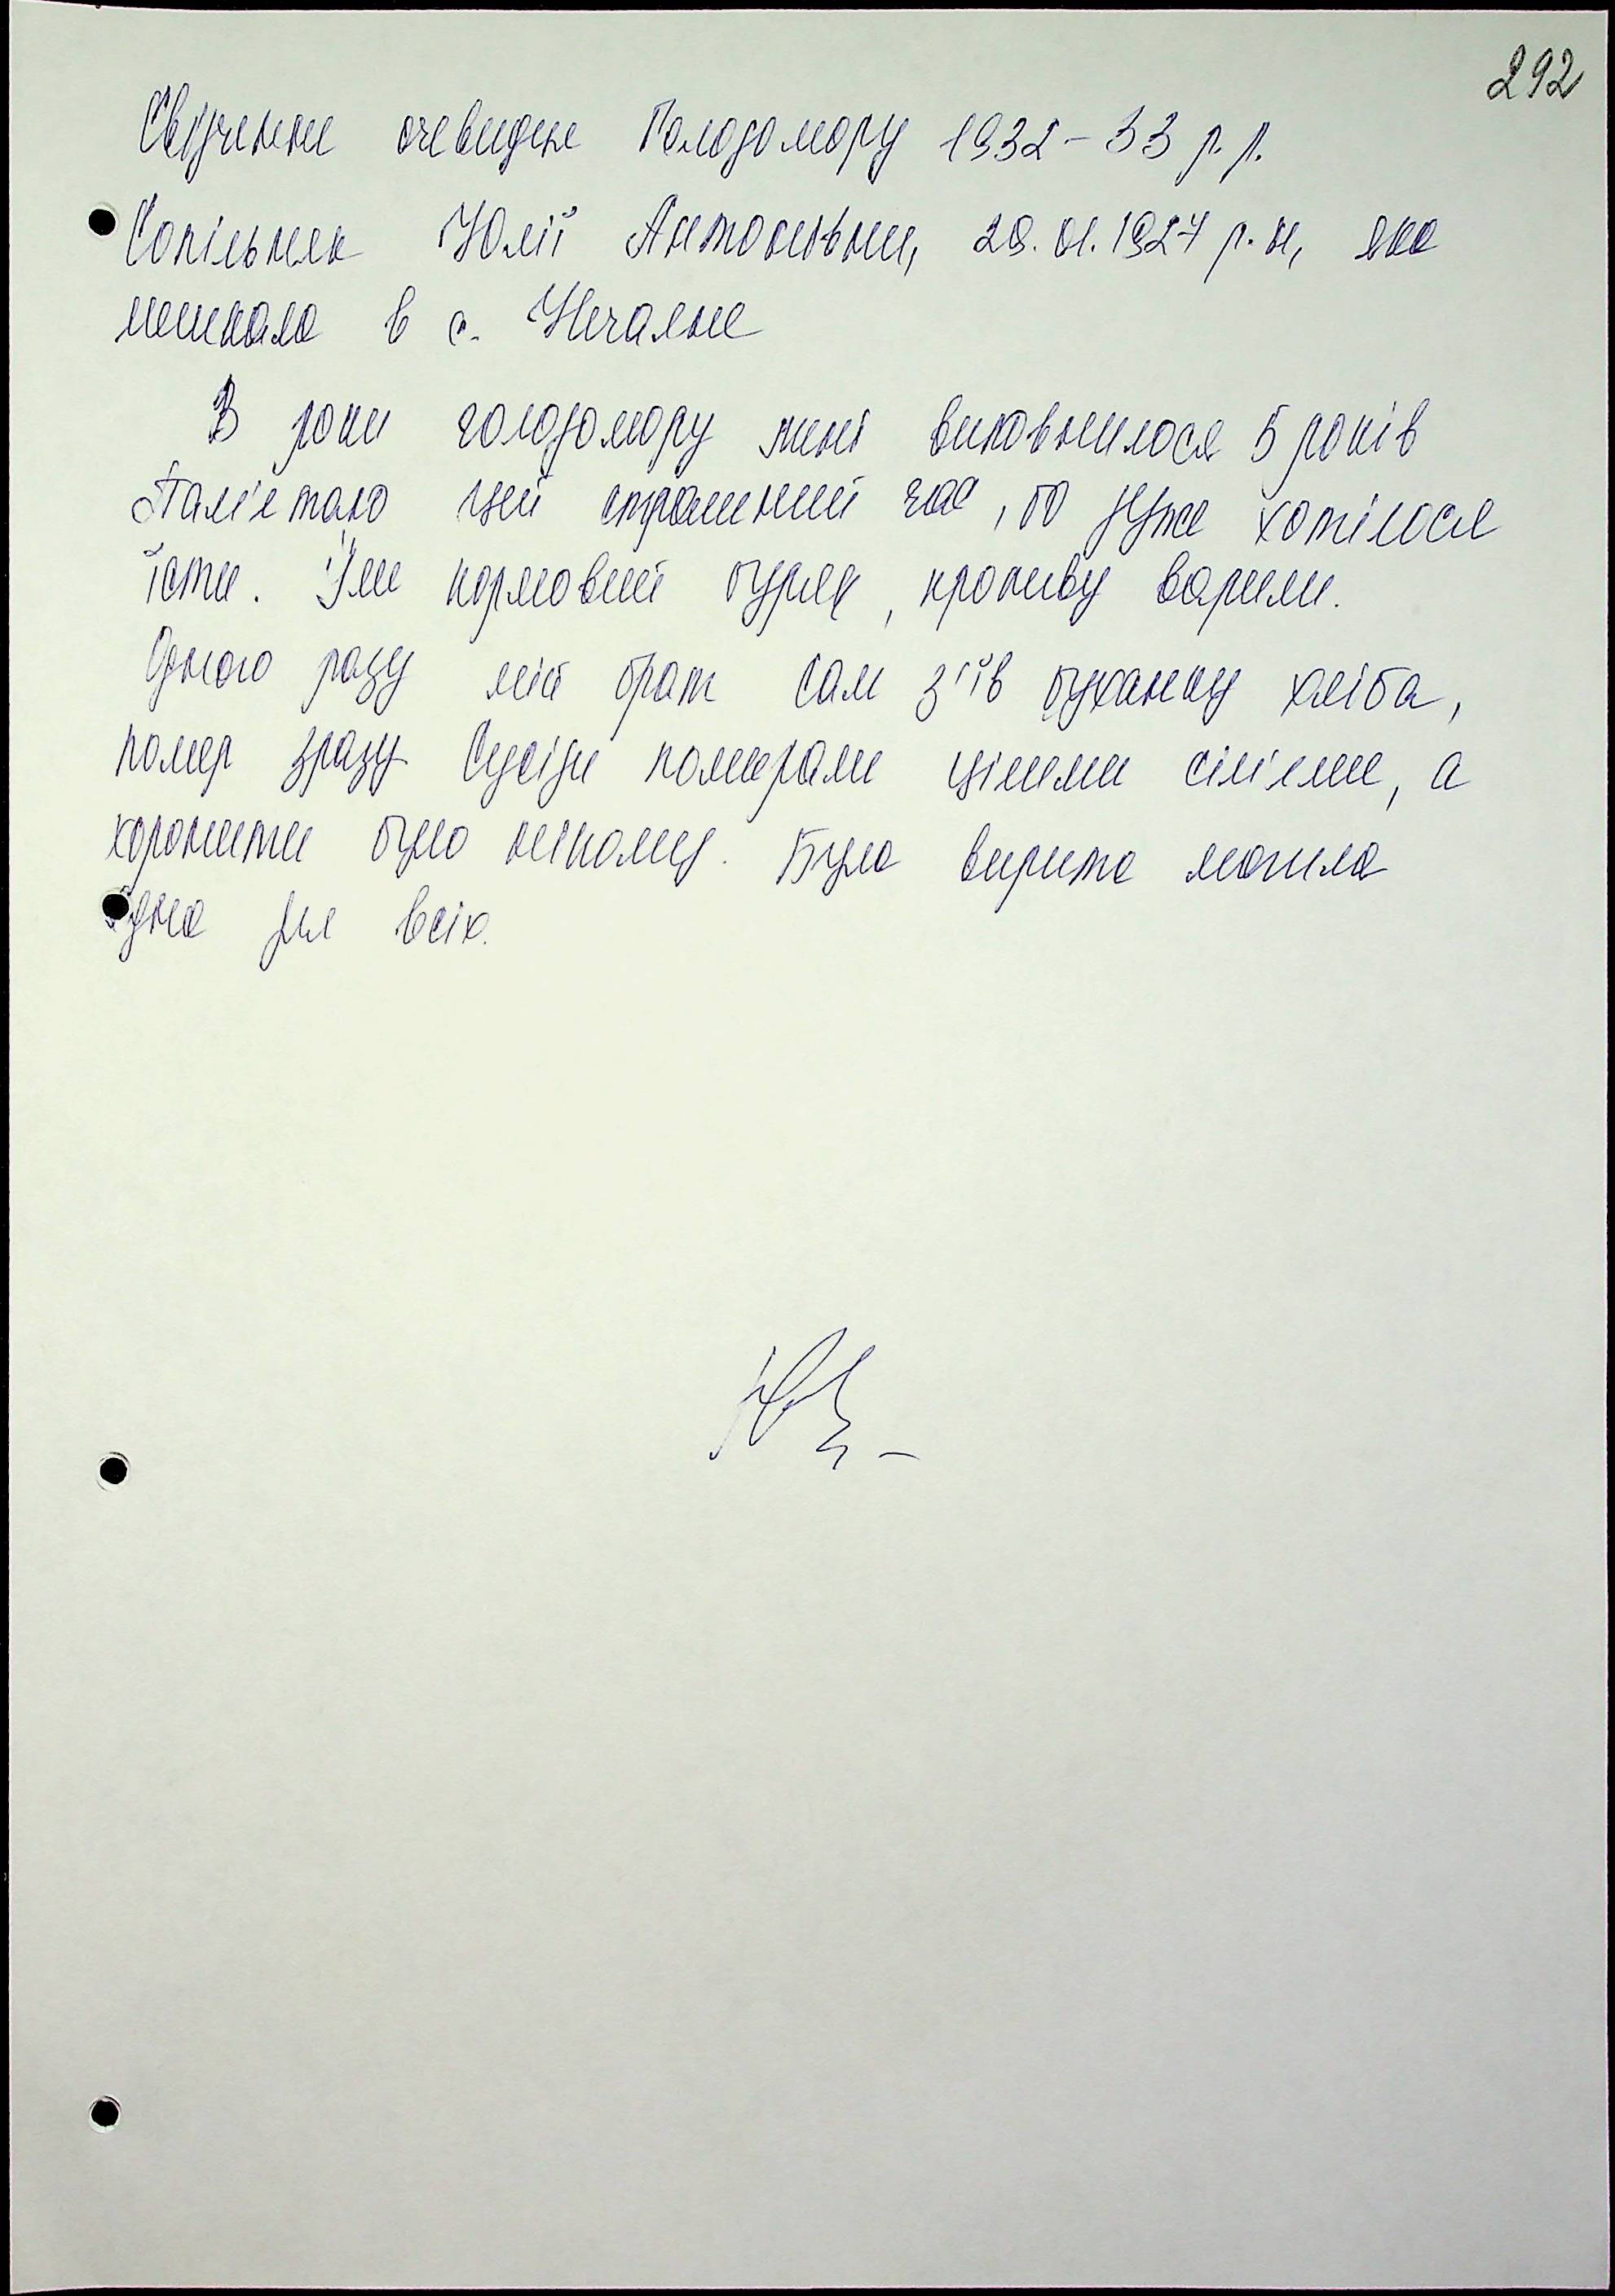 292
Свідчення очевидця Голодомору 1932-33 р.р.
Сопільняк Юлії Антонівни, 29.01.1927 р.н, яка
мешкала в с.
В роки голодомору мені виповнилося 5 років
Пам'ятаю цей страшний час, бо дуже хотілося
їсти. Їли кормовий буряк, кропиву варили.
Одного разу мій брат сам з'їв буханку хліба,
помер зразу. Сусіди помирали цілими сім'ями, а
хоронити було нікому. Була вирита могила
одна для всіх.